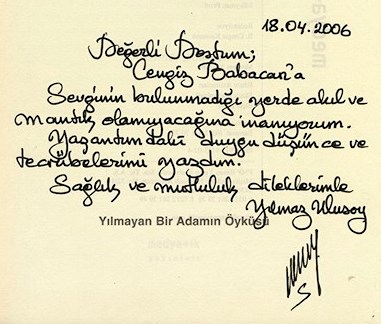 18.04.2006
Değerli Dostum;
Cengiz Babacan'a
Sevginin bulunmadığı yerde akıl ve
mantık olamıyacağına inanıyorum.
Yaşantımdaki duygu düşünce ve
tecrübelerimi yazdım.
Sağlık ve mutluluk dileklerimle
Yılmaz Ulusoy
Yılmayan Bir Adamın Öyküsü